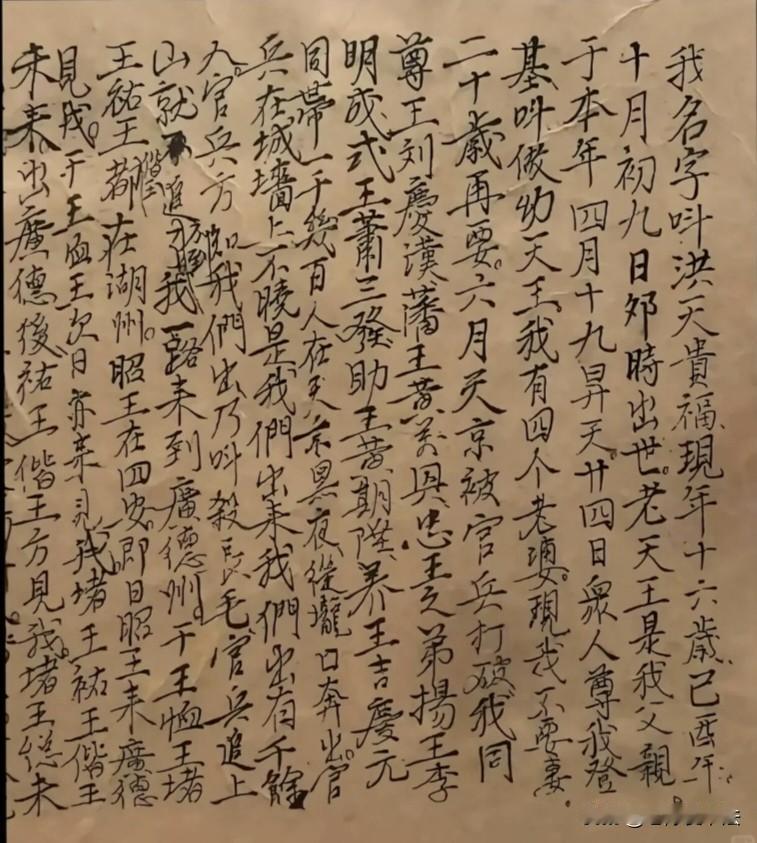 我名字呌洪天貴福現年十六歲己酉年
十月初九日夘時出世老天王是我父親
于本年四月十九昇天廿四日衆人尊我登
基呌做幼天王我有四个老婆現我不要妻
二十歲再要六月天京被官兵打破我同
尊王刘慶漢藩王黃萬興忠王之弟揚王李
明成式王蕭三發助王黃期陞养王吉慶元
同帶一千幾百人在天京黑夜從壠口奔出官
兵在城墻上不曉是我們出來我們出有千餘
人官兵方知我們出乃呌殺長毛官兵追上
山就不追我一路來到廣德州干王恤王堵
王祐王偕王都在湖州昭王在四安即日昭王來廣德
見我干王恤王次日亦來見我堵王祐王偕王
未來出廣德後祐王偕王方見我堵王総未